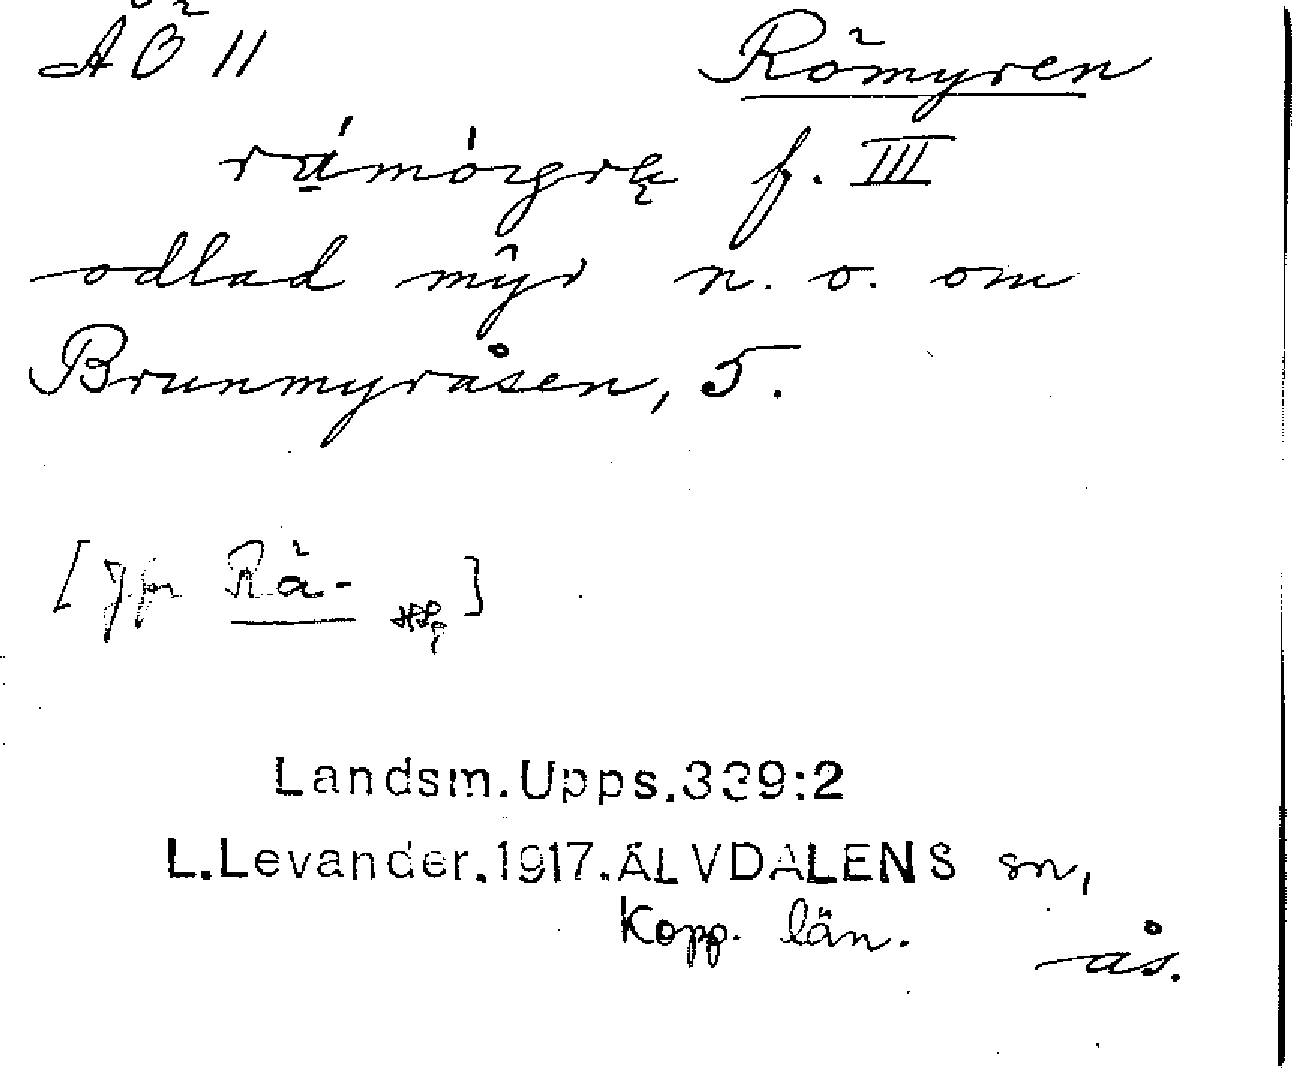 ÅÖ 11
Römyren
f. III
odlad myr n. o. om
Brunmyråsen, 5.
[Jfr Rå- ]
Landsm.Upps.339:2
L.Levander.1917.ÄLVDALENS sn,
Kopp. län.
ås.